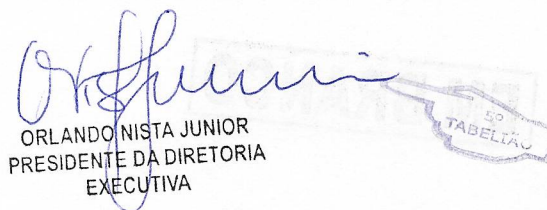 ORLANDO NISTA JUNIOR
PRESIDENTE DA DIRETORIA
EXECUTIVA
5º
TABELIÃO